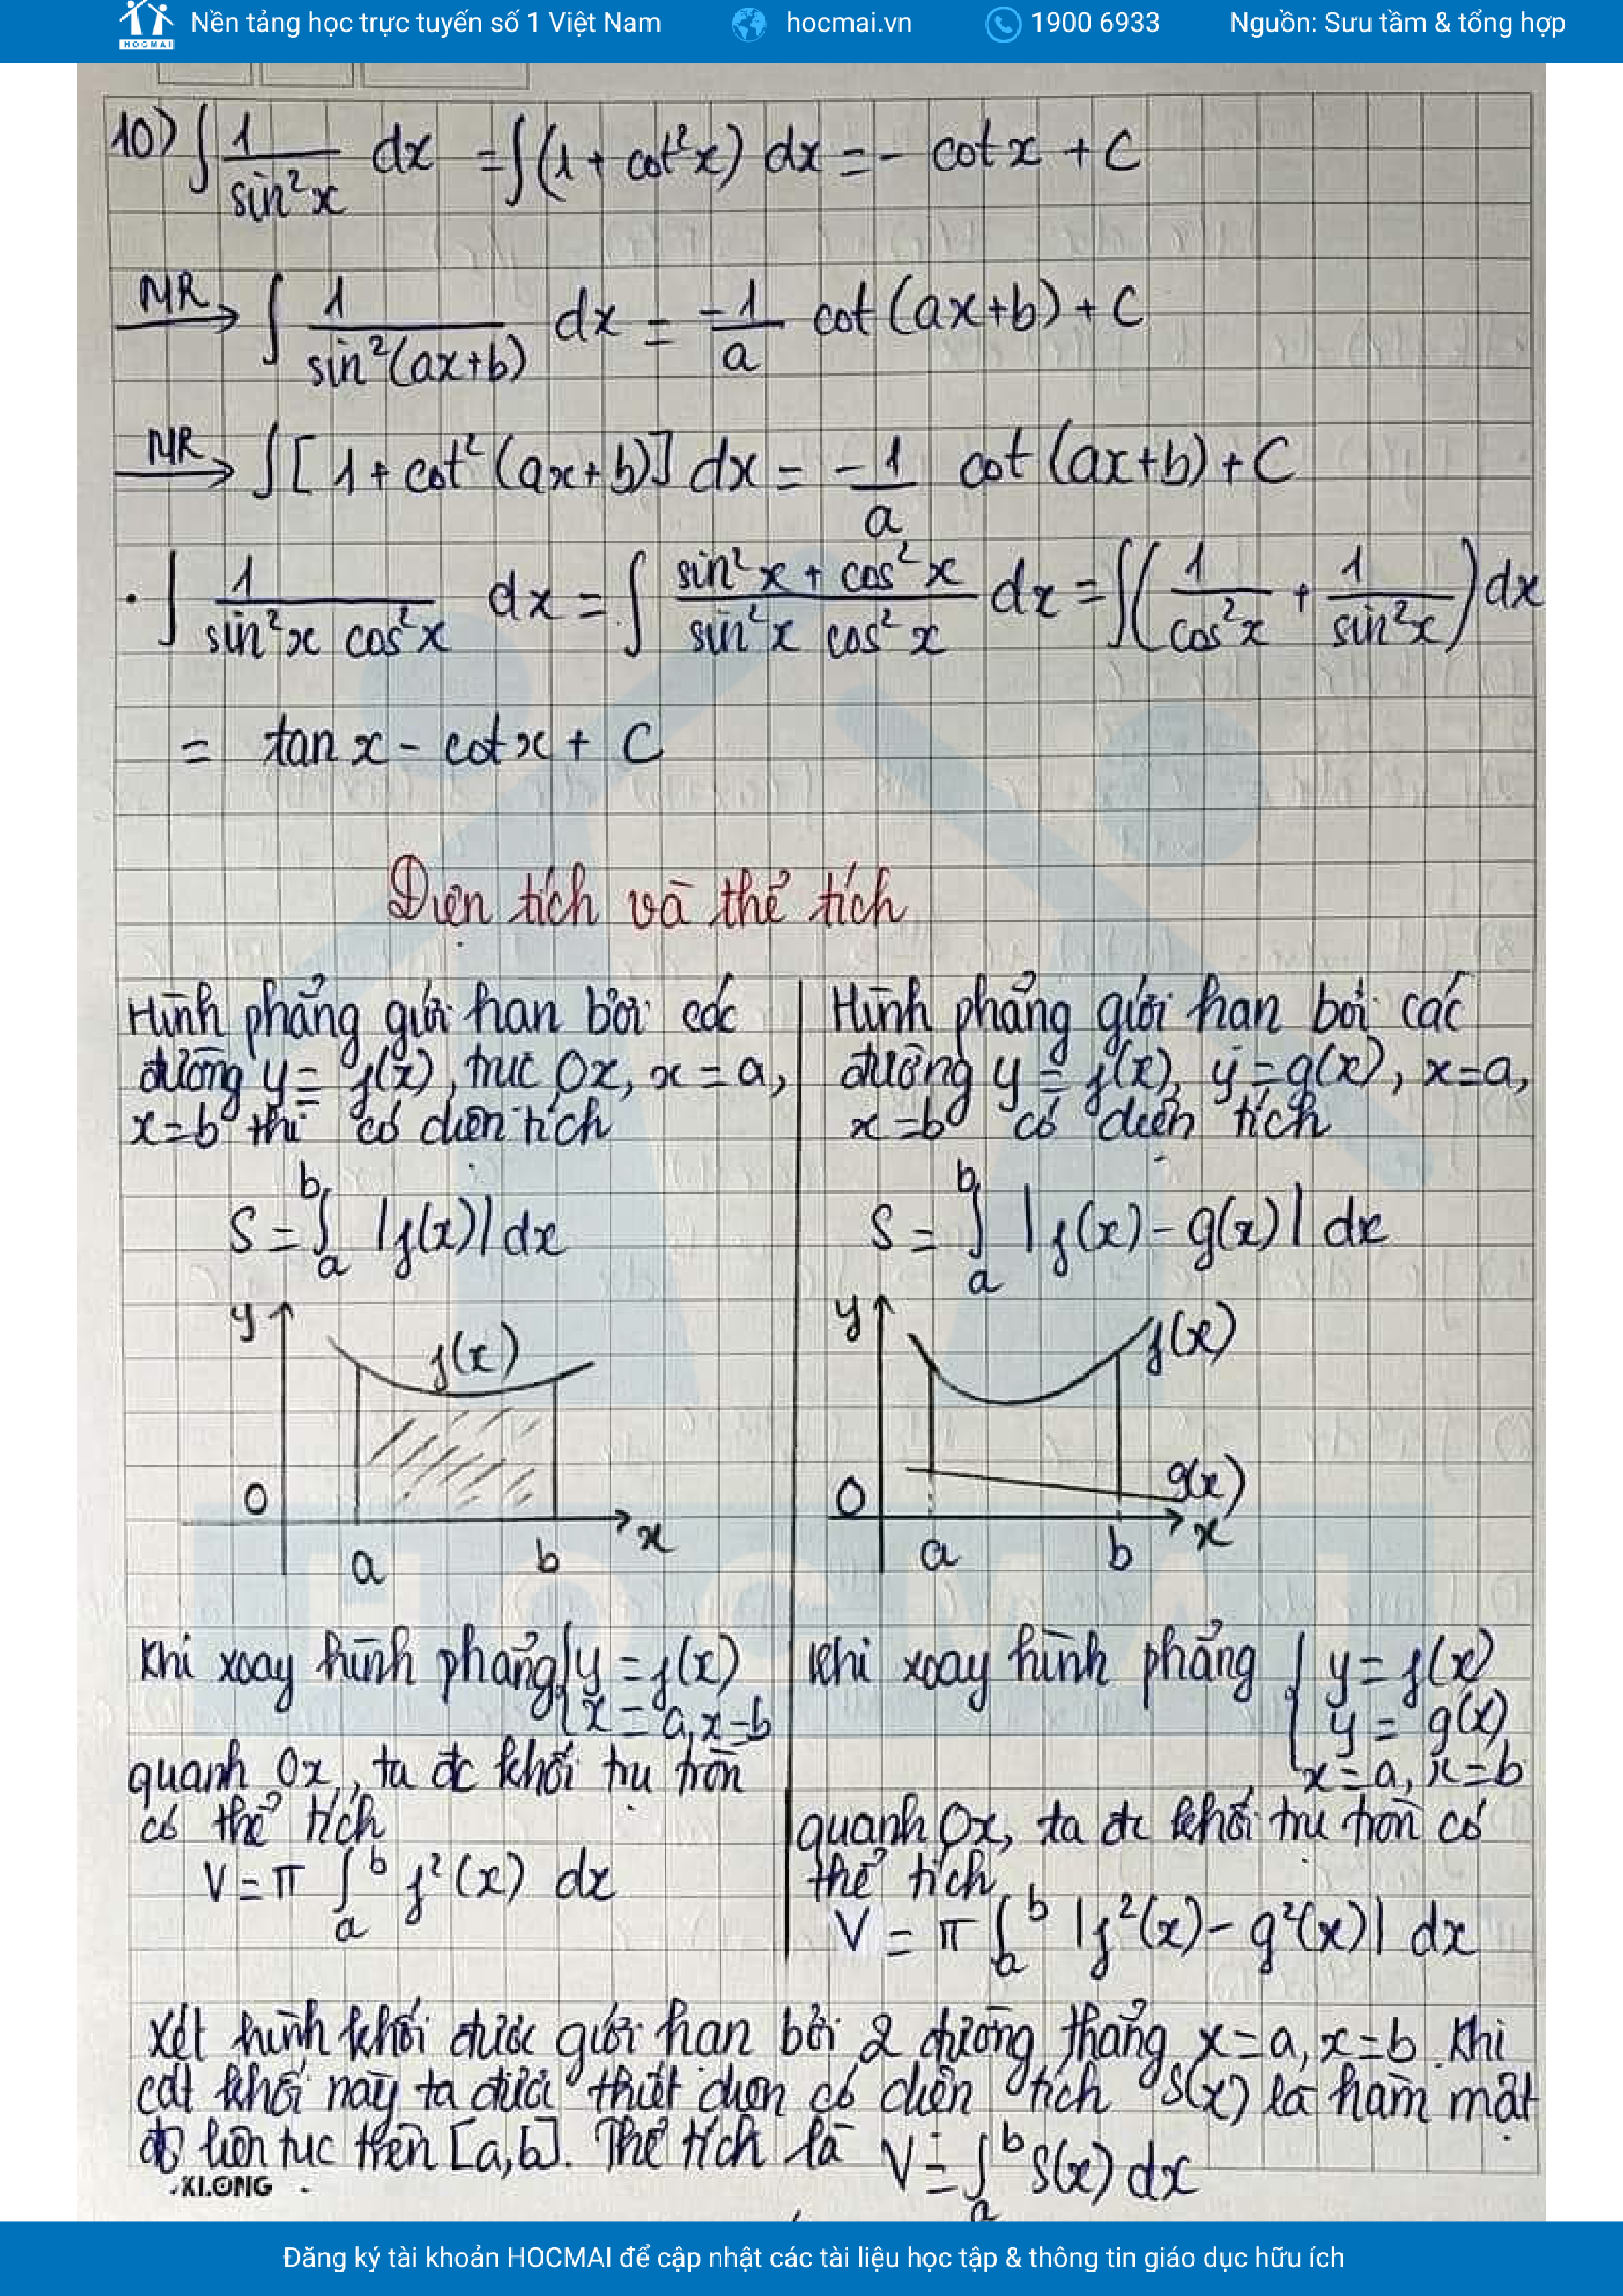 HOCMAI Nền tảng học trực tuyến số 1 Việt Nam hocmai.vn 1900 6933 Nguồn: Sưu tầm & tổng hợp
10) ∫ 1/sin²x dx = ∫(1 + cot²x) dx = - cot x + C
NR→ ∫ 1/sin²(ax+b) dx = -1/a cot (ax+b) + C
NR→ ∫[1 + cot²(ax+b)] dx = -1/a cot (ax+b) + C
· ∫ 1/(sin²x cos²x) dx = ∫ (sin²x + cos²x)/(sin²x cos²x) dx = ∫(1/cos²x + 1/sin²x) dx
= tan x - cot x + C
Diện tích và thể tích
Hình phẳng giới hạn bởi các
đường y = f(x), trục Ox, x = a,
x = b thì có diện tích
S = ∫_a^b |f(x)| dx
y
f(x)
O
a b x
Khi xoay hình phẳng { y = f(x)
x = a, x = b
quanh Ox, ta đc khối trụ tròn
có thể tích
V = π ∫_a^b f²(x) dx
Hình phẳng giới hạn bởi các
đường y = f(x), y = g(x), x = a,
x = b có diện tích
S = ∫_a^b |f(x) - g(x)| dx
y
f(x)
g(x)
O
a b x
Khi xoay hình phẳng { y = f(x)
y = g(x)
x = a, x = b
quanh Ox, ta đc khối trụ tròn có
thể tích
V = π ∫_a^b |f²(x) - g²(x)| dx
Xét hình khối được giới hạn bởi 2 đường thẳng x = a, x = b. Khi
cắt khối này ta được thiết diện có diện tích S(x) là hàm mật
độ liên tục trên [a,b]. Thể tích là V = ∫_a^b S(x) dx
KLONG
HOCMAI
Đăng ký tài khoản HOCMAI để cập nhật các tài liệu học tập & thông tin giáo dục hữu ích